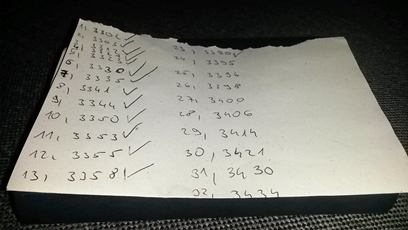 1, 3302
6, 3330
7, 3335
8, 3341
9, 3344
10, 3350
11, 3353
12, 3355
13, 3358
24, 3395
25, 3396
26, 3398
27, 3400
28, 3406
29, 3414
30, 3421
31, 3430
32, 3434